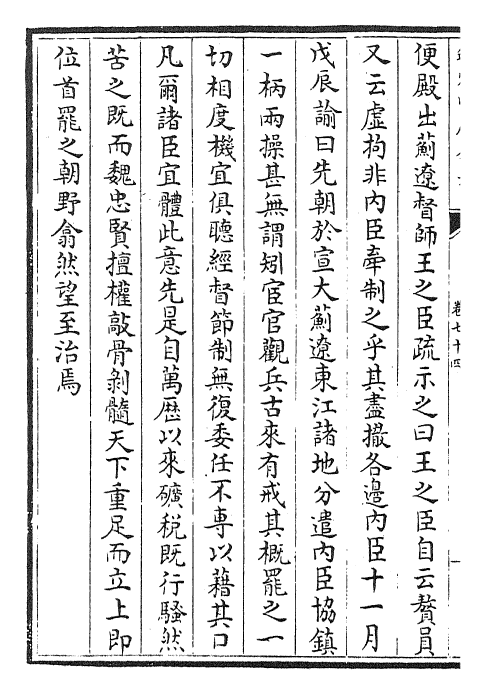 便殿出薊遼督師王之臣疏示之曰王之臣自云贅員
又云虛拘非內臣牽制之乎其盡撤各邊內臣十一月
戊辰諭曰先朝於宣大薊遼東江諸地分遣內臣協鎮
一柄兩操甚無謂矧宦官觀兵古來有戒其概罷之一
切相度機宜俱聽經督節制無復委任不專以藉其口
凡爾諸臣宜體此意先是自萬歷以來礦稅既行騷然
苦之既而魏忠賢擅權敲骨剝髓天下重足而立上即
位首罷之朝野翕然望至治焉
卷七十四